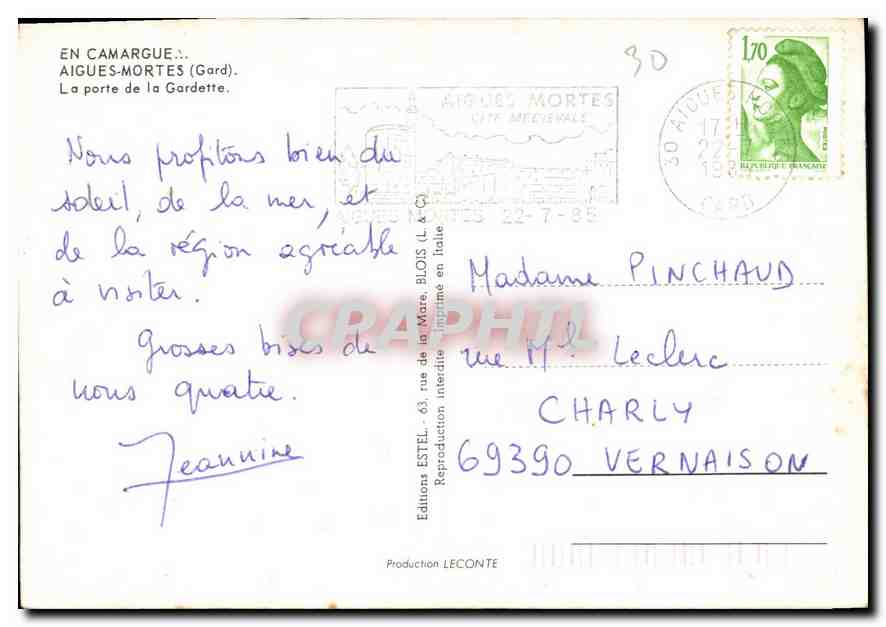 EN CAMARGUE...
AIGUES-MORTES (Gard).
La porte de la Gardette.
30
AIGUES MORTES
CITE MEDIEVALE
AIGUES MORTES 22-7-85
30 AIGUES
17 H
22
198
GARD
1,70
REPUBLIQUE FRANÇAISE
Nous profitons bien du
soleil, de la mer, et
de la région agréable
à visiter.
Grosses bises de
nous quatre.
Jeannine
Editions ESTEL. - 63, rue de la Mare, BLOIS (L. & C)
Reproduction interdite - Imprimé en Italie
Madame PINCHAUD
rue Mal Leclerc
CHARLY
69390 VERNAISON
Production LECONTE
CPAPHIL